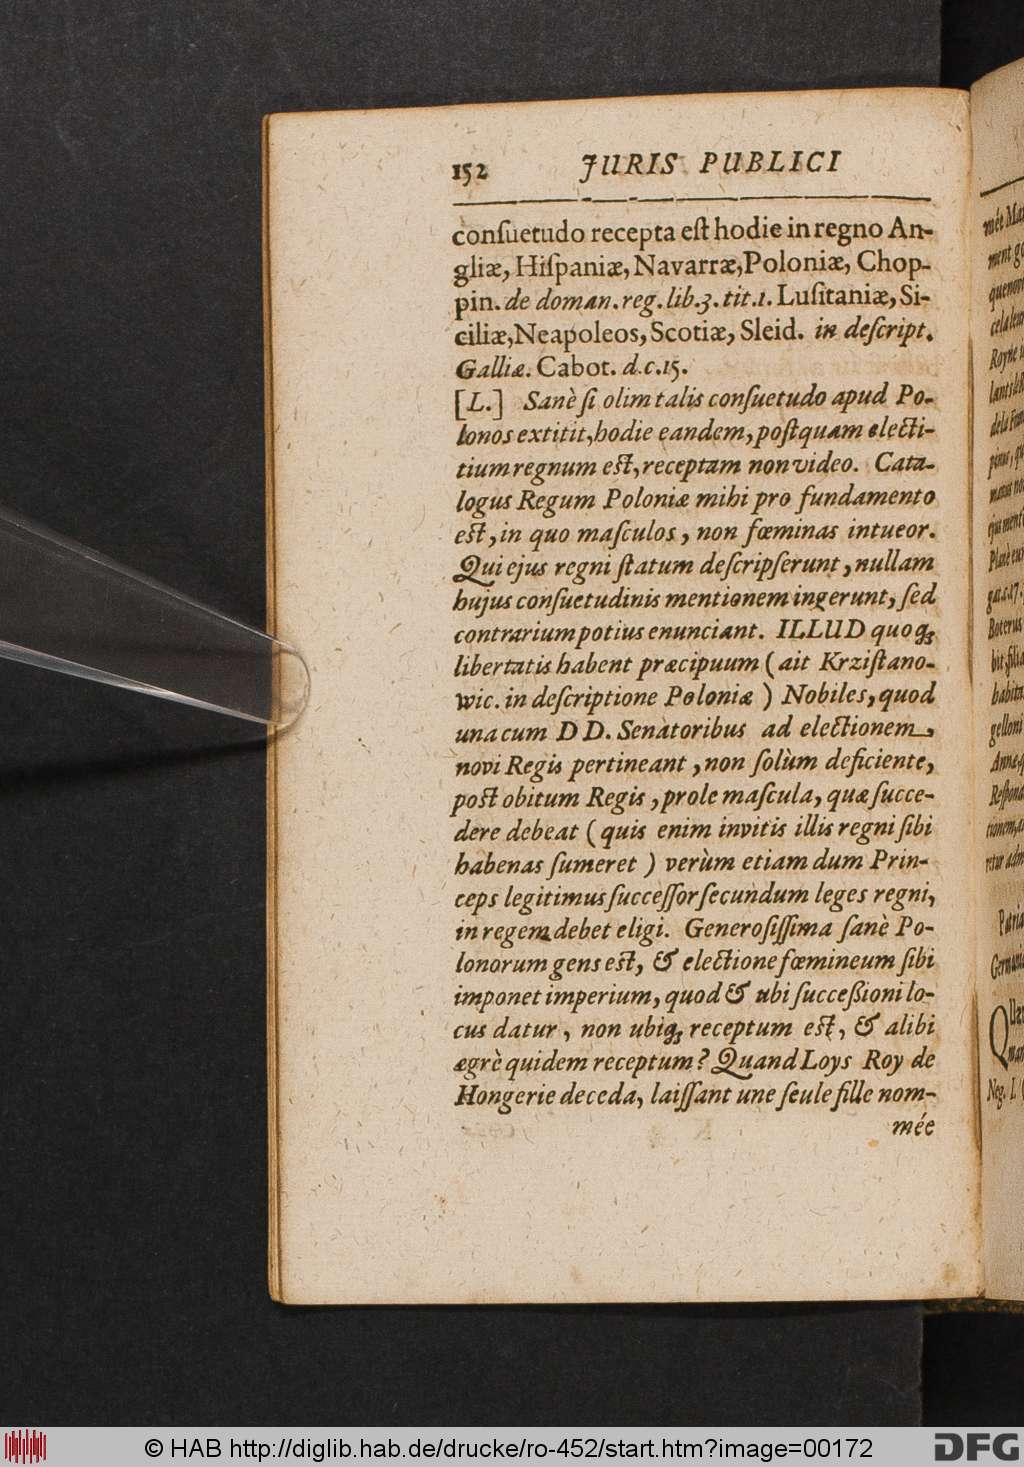 152 JURIS PUBLICI
conſuetudo recepta eſt hodie in regno An-
gliæ, Hiſpaniæ, Navarræ, Poloniæ, Chop-
pin. de doman. reg. lib. 3. tit. 1. Luſitaniæ, Si-
ciliæ, Neapoleos, Scotiæ, Sleid. in deſcript.
Galliæ. Cabot. d. c. 15.
[L.] Sanè ſi olim talis conſuetudo apud Po-
lonos extitit, hodie eandem, poſtquam electi-
tium regnum eſt, receptam non video. Cata-
logus Regum Poloniæ mihi pro fundamento
eſt, in quo maſculos, non fœminas intueor.
Qui ejus regni ſtatum deſcripſerunt, nullam
hujus conſuetudinis mentionem ingerunt, ſed
contrarium potius enunciant. ILLUD quoq;
libertatis habent præcipuum (ait Krziſtano-
wic. in deſcriptione Poloniæ) Nobiles, quod
una cum DD. Senatoribus ad electionem,
novi Regis pertineant, non ſolùm deficiente,
poſt obitum Regis, prole maſcula, quæ ſucce-
dere debeat (quis enim invitis illis regni ſibi
habenas ſumeret) verùm etiam dum Prin-
ceps legitimus ſucceſſor ſecundum leges regni,
in regem debet eligi. Generoſiſſima ſanè Po-
lonorum gens eſt, & electione fœmineum ſibi
imponet imperium, quod & ubi ſucceßioni lo-
cus datur, non ubiq; receptum eſt, & alibi
ægrè quidem receptum? Quand Loys Roy de
Hongerie deceda, laiſſant une ſeule fille nom-
mée
mée
ment
Boterus
habita
gelloni
Patria
© HAB http://diglib.hab.de/drucke/ro-452/start.htm?image=00172
DFG